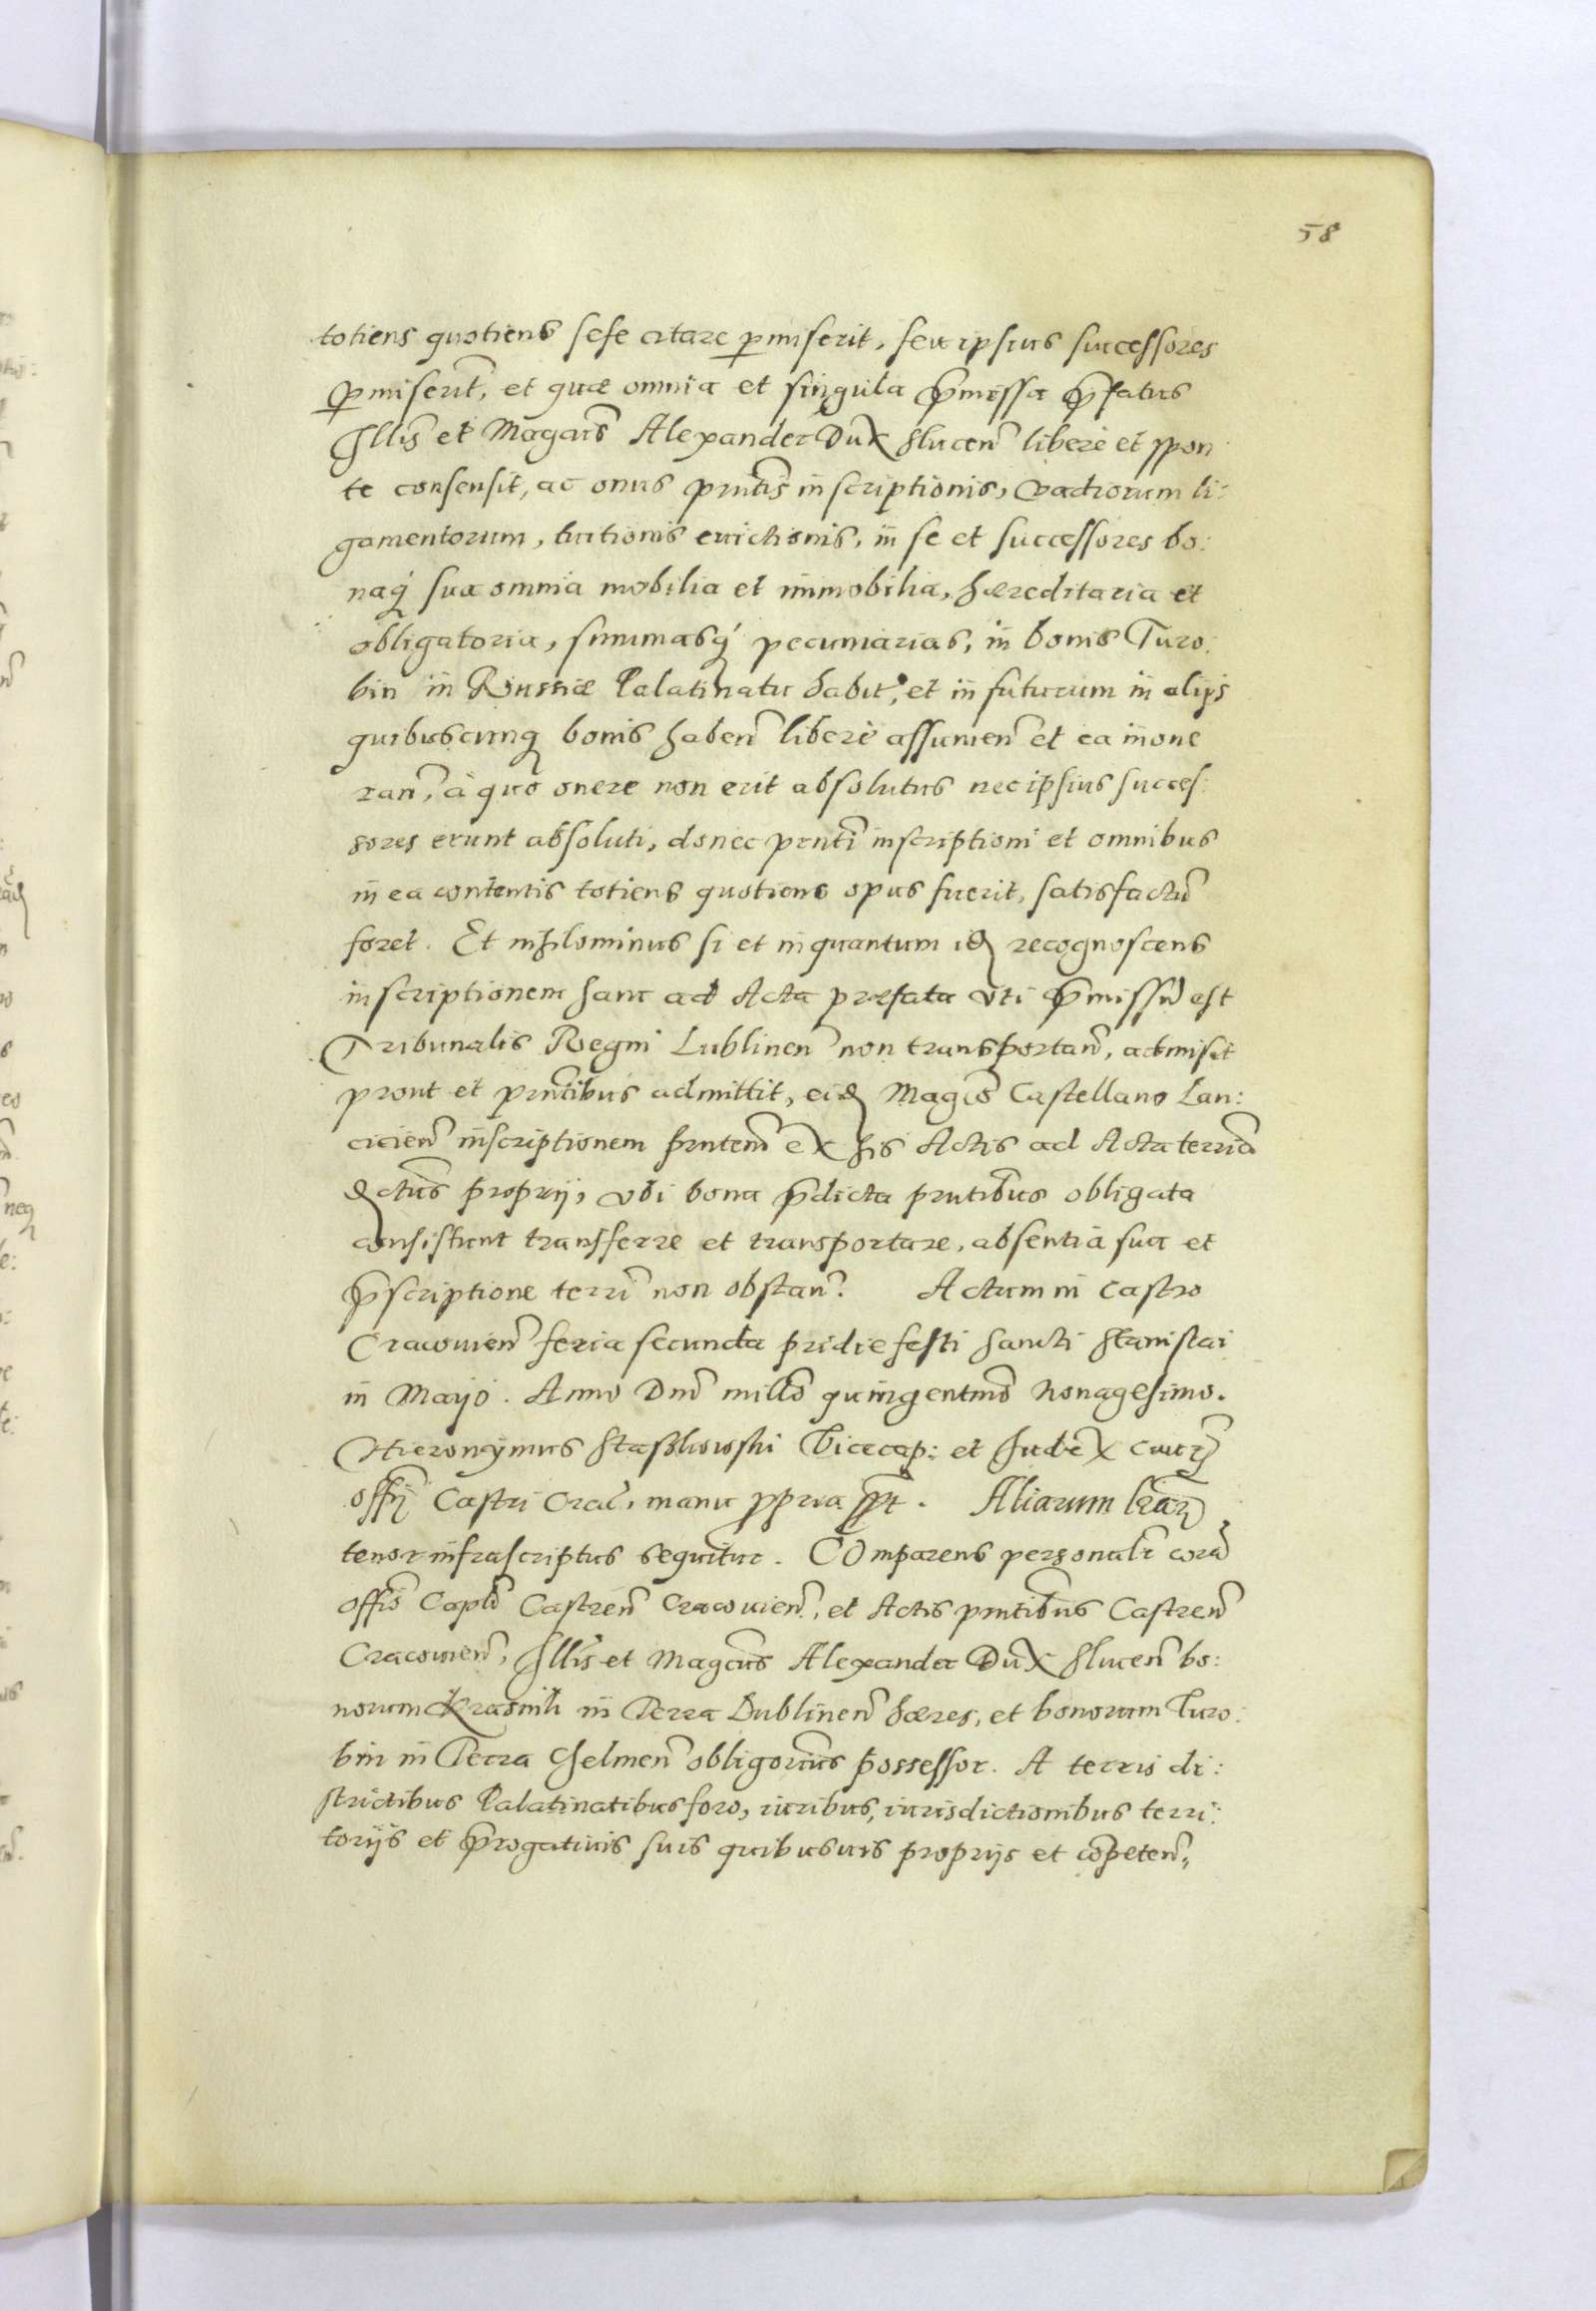 58
totiens quotiens sese citare p̱miserit, seu ipsius successores
p̱miserit̃, et quæ omnia et singula p̃missa p̃fatus
Illis̃ et Magcus̃ Alexander Dux Slucen̄ liberè et spon
te consensit, ac onus pr̃ntis̃ inscriptionis, vadiorum li:
gamentorum, tuitionis euictionis, in se et successores bo:
naq́ sua omnia mobilia et immobilia, hæreditaria et
obligatoria, summasq́ pecuniarias, in bonis Turo:
bin in Russiæ Palatinatu habit̃, et in futurum in alijs
quibuscunq bonis haben̄ liberè assumen̄ et ea inone
ran̄, à quo onere non erit absolutus nec ipsius succes:
sores erunt absoluti, donec prntī inscriptioni et omnibus
in ea contentis totiens quotiens opus fuerit, satisfactū
foret. Et nihlominus si et inquantum id recognoscens
inscriptionem hanc ad Acta præfata vti p̃missū est
Tribunalis Regni Lublinen̄ non transportan̄, admisit
prout et prntibus̃ admittit, eid Magco̅ Castellano Lan:
cicien̄ inscriptionem prntem̃ ex his Actis ad Acta terria̅
dctus̃ proprij, vbi bona p̃dicta prntibus̃ obligata
consistunt transferre et transportare, absentia sua et
p̃scriptione terri̅ non obstan̄. Actum in Castro
Cracouien̄ feria secunda pridie festi Sancti Stanislai
in Mayo. Anno Dnī millō quingentmō Nonagesimo.
Hieronymus Stasskowski Vicecap: et Judex caurz̃
offi̅j Castri Crac̄, manu ppria sspt. Aliarum lrar̃
tenor infrascriptus sequitur. COmparens personalr̄ corā
offiō Capli̅ Castren̄ Cracouien̄, et Actis prntibus̃ Castren̄
Cracouien̄, Illis̃ et Magcus̃ Alexander Dux Slucen̄ bo:
norum Krasnik in Terra Lublinen̄ hæres, et bonorum Turo:
bin in Terra Chelmen̄ obligorius̃ possessor. A terris di:
strictibus Palatinatibus foro, iuribus, iurisdictionibus terri:
torijs et p̃rogatiuis suis quibusuis proprijs et cōpeten̄,